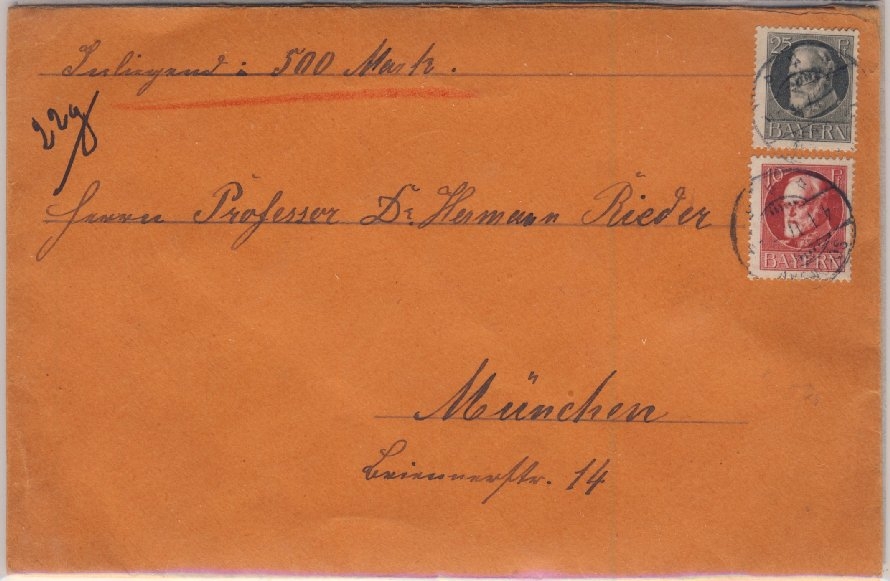 Inliegend: 500 Mark.
22g
25 Pf
BAYERN
10 Pf
BAYERN
Herrn Professor Dr. Hermann Rieder
München
Briennerstr. 14